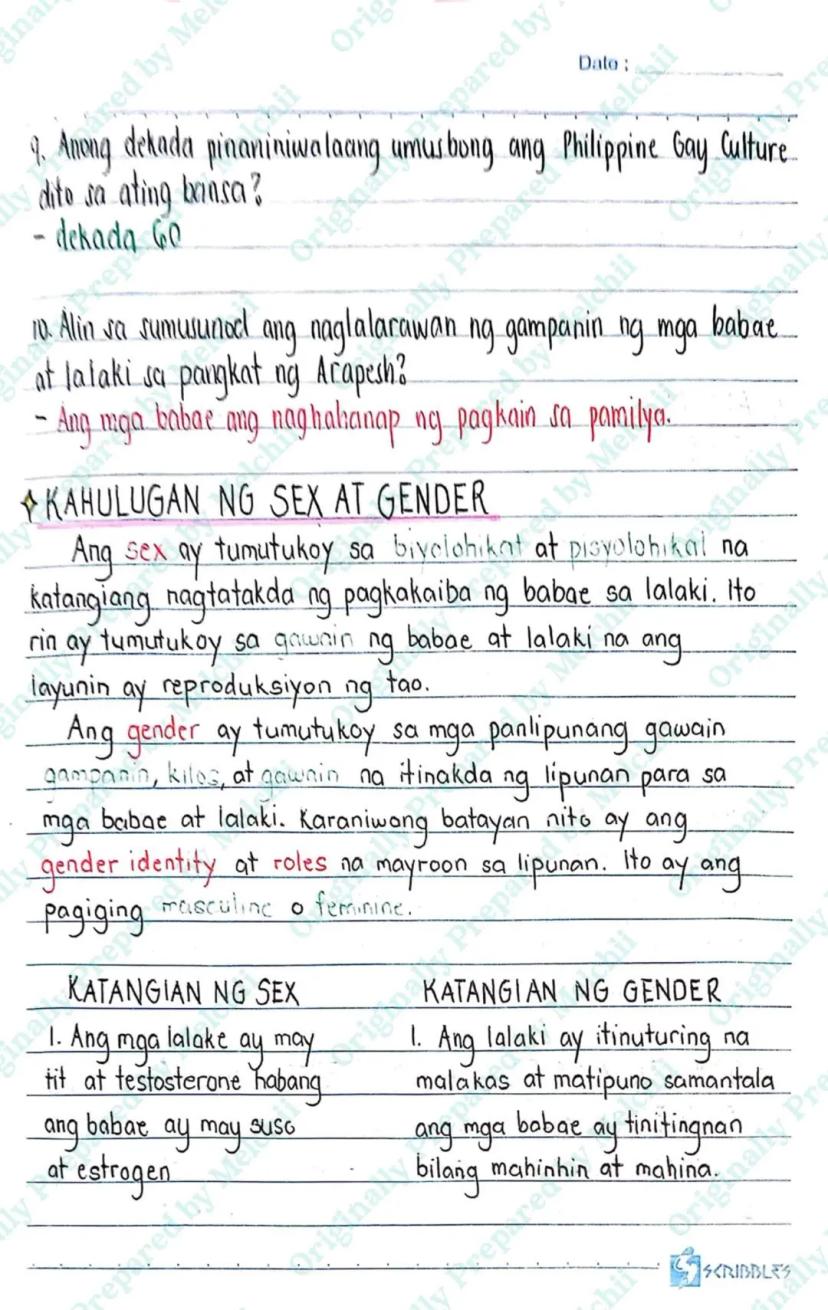 Date :
9. Anong dekada pinaniniwalaang umusbong ang Philippine Gay Culture
dito sa ating bansa?
- dekada 60
10. Alin sa sumusunod ang naglalarawan ng gampanin ng mga babae
at lalaki sa pangkat ng Arapesh?
- Ang mga babae ang naghahanap ng pagkain sa pamilya.
KAHULUGAN NG SEX AT GENDER
Ang sex ay tumutukoy sa biyolohikal at pisyolohikal na
katangiang nagtatakda ng pagkakaiba ng babae sa lalaki. Ito
rin ay tumutukoy sa gawain ng babae at lalaki na ang
layunin ay reproduksiyon ng tao.
Ang gender ay tumutukoy sa mga panlipunang gawain
gampanin, kilos, at gawain na itinakda ng lipunan para sa
mga babae at lalaki. Karaniwang batayan nito ay ang
gender identity at roles na mayroon sa lipunan. Ito ay ang
pagiging masculine o feminine.
KATANGIAN NG SEX
1. Ang mga lalake ay may
tit at testosterone habang
ang babae ay may suso
at estrogen
KATANGIAN NG GENDER
1. Ang lalaki ay itinuturing na
malakas at matipuno samantala
ang mga babae ay tinitingnan
bilang mahinhin at mahina.
SCRIBBLES
Originally Prepared by Melchii